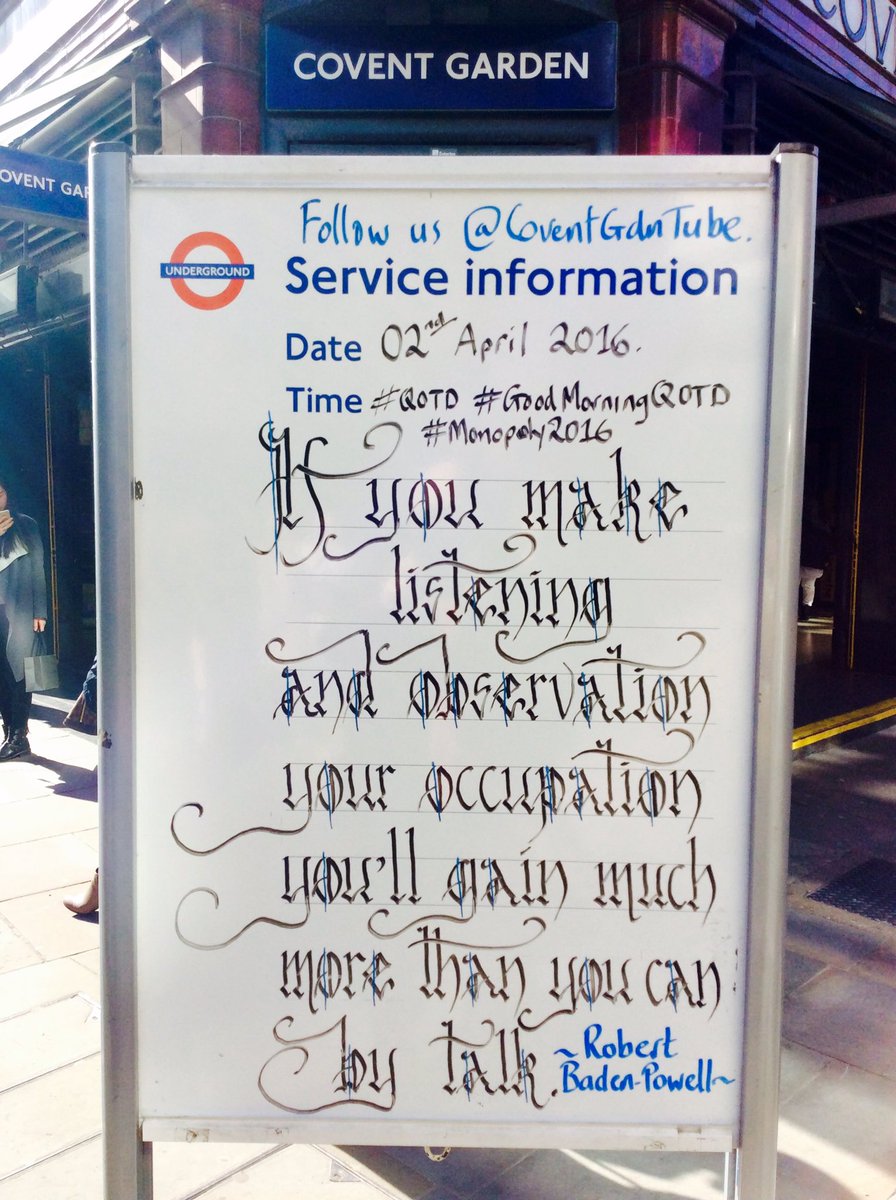 COVENT GARDEN
COVENT GAR
COV
Follow us @CoventGdnTube.
UNDERGROUND
Service information
Date 02nd April 2016.
Time #QOTD #GoodMorningQOTD
#Monopoly2016
If you make
listening
and observation
your occupation
you'll gain much
more than you can
by talk.
~Robert
Baden-Powell~